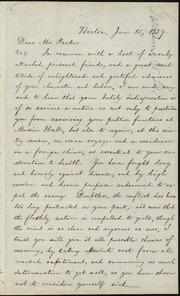 Boston, Jan. 15, 1859.
Dear Mr. Parker:
In common with a host of devotedly
attached personal friends, and a great mul-
titude of enlightened and grateful admirers
of your character and labors, I am made very
sad to know that your bodily indisposition is
of so serious a nature as not only to disable
you from exercising your public functions at
Music Hall, but also to require, at this win-
try season, an ocean voyage and a residence
in a foreign clime, as essential to your res-
toration to health. You have fought long
and bravely against disease, and by high
resolve and heroic purpose endeavored to re-
pel the enemy. Doubtless, the conflict has been
too long protracted on your part; and, is now
that the fleshly nature is compelled to yield, though
the mind is as clear and vigorous as ever, I
trust you will give it all possible chances of
recovery, by taking absolute rest from all
mental employment, and summoning as much
determination to get well, as you have shown
not to consider yourself sick.